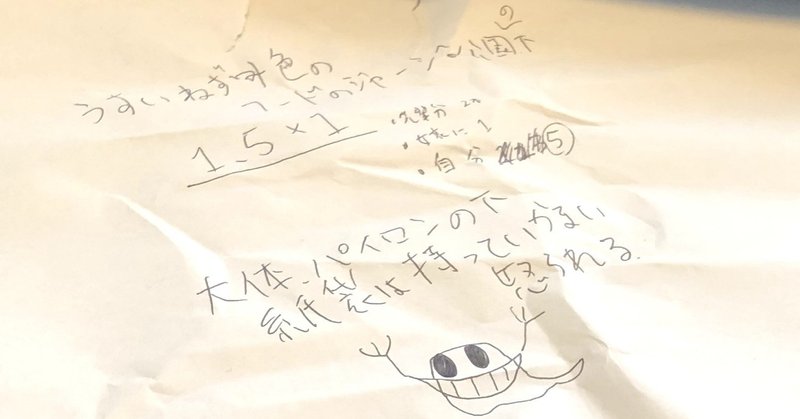 の
うすいねずみ色の
フードのジャージ 公園下
1.5×1
・先輩分 2コ
・女友に 1
・自分 ⑤
大体、パイロンの下
紙袋は持っていかない
怒られる.